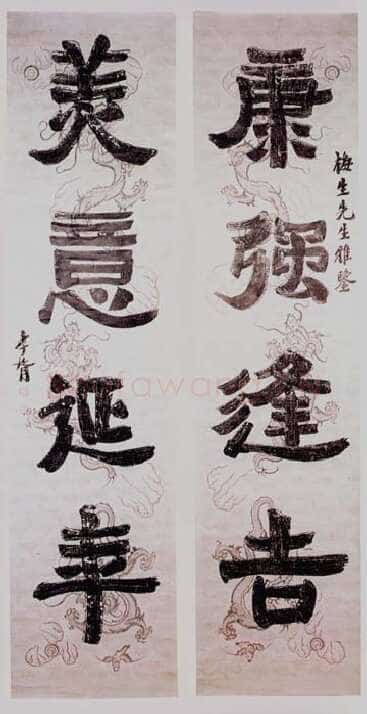 康强逢吉
梅生先生雅鑒
美意延年
李